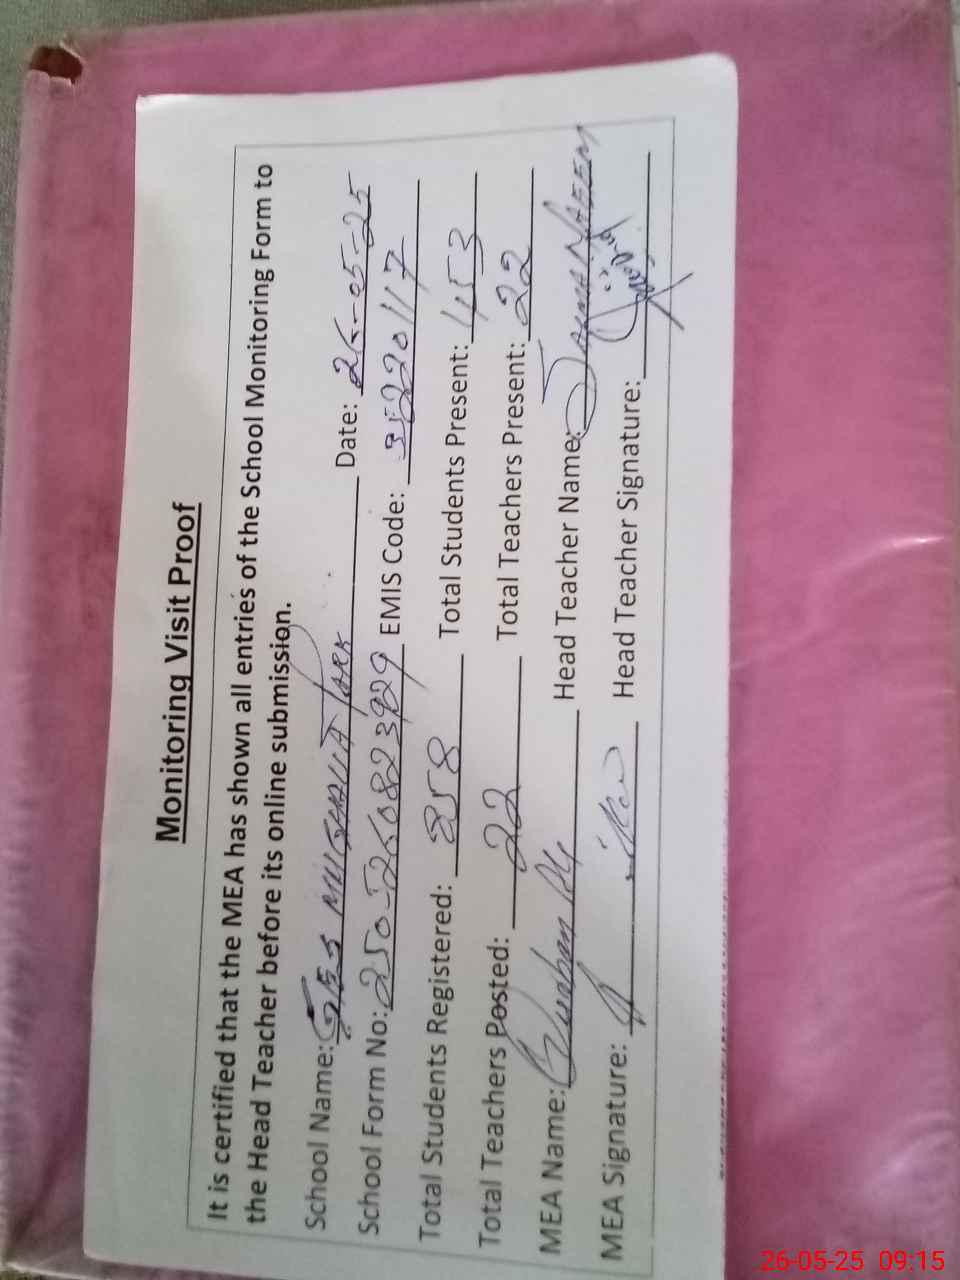 Monitoring Visit Proof
It is certified that the MEA has shown all entries of the School Monitoring Form to
the Head Teacher before its online submission.
School Name: GES MUGHALA PARK Date: 26-05-25
School Form No: EMIS Code: 35220117
Total Students Registered: 858 Total Students Present: 453
Total Teachers Posted: 22 Total Teachers Present: 22
MEA Name: Head Teacher Name: NAEEM
MEA Signature: Head Teacher Signature:
26-05-25 09:15